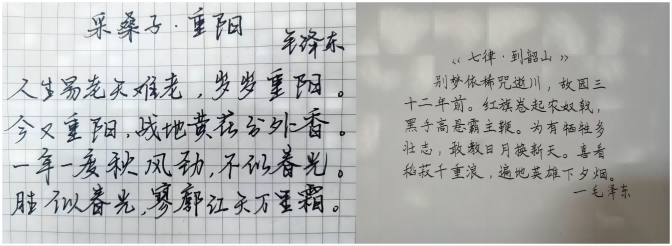 采桑子·重阳
毛泽东
人生易老天难老，岁岁重阳。
今又重阳，战地黄花分外香。
一年一度秋风劲，不似春光。
胜似春光，寥廓江天万里霜。
《七律·到韶山》
别梦依稀咒逝川，故园三
十二年前。红旗卷起农奴戟，
黑手高悬霸主鞭。为有牺牲多
壮志，敢教日月换新天。喜看
稻菽千重浪，遍地英雄下夕烟。
一毛泽东